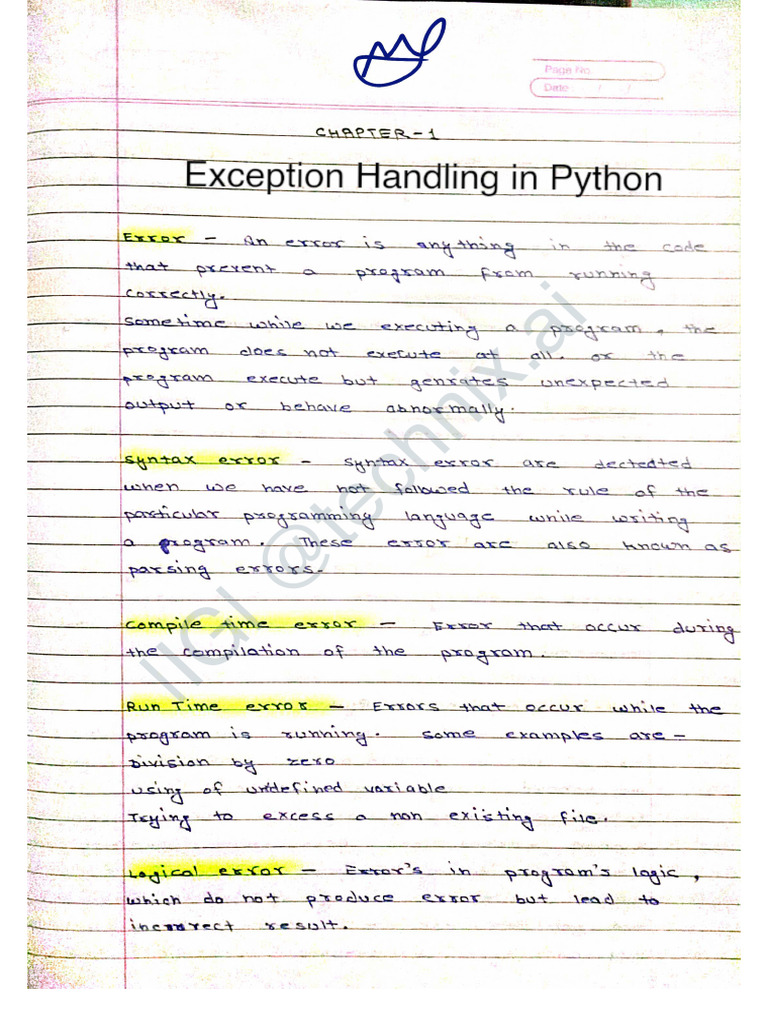 Page No.
Date / /
CHAPTER-1
Exception Handling in Python
Error - An error is anything in the code
that prevent a program from running
correctly.
sometime while we executing a program, the
program does not execute at all. or the
program execute but genrates unexpected
output or behave abnormally.
Syntax error - syntax error are dectected
when we have not followed the rule of the
particular programming language while writing
a program. These error are also known as
parsing errors.
Compile time error - Error that occur during
the compilation of the program.
Run Time error - Errors that occur while the
program is running. some examples are -
Division by zero
using of undefined variable
Trying to excess a non existing file.
Logical error - Error's in program's logic,
which do not produce error but lead to
incorrect result.
IIGI @technix.ai